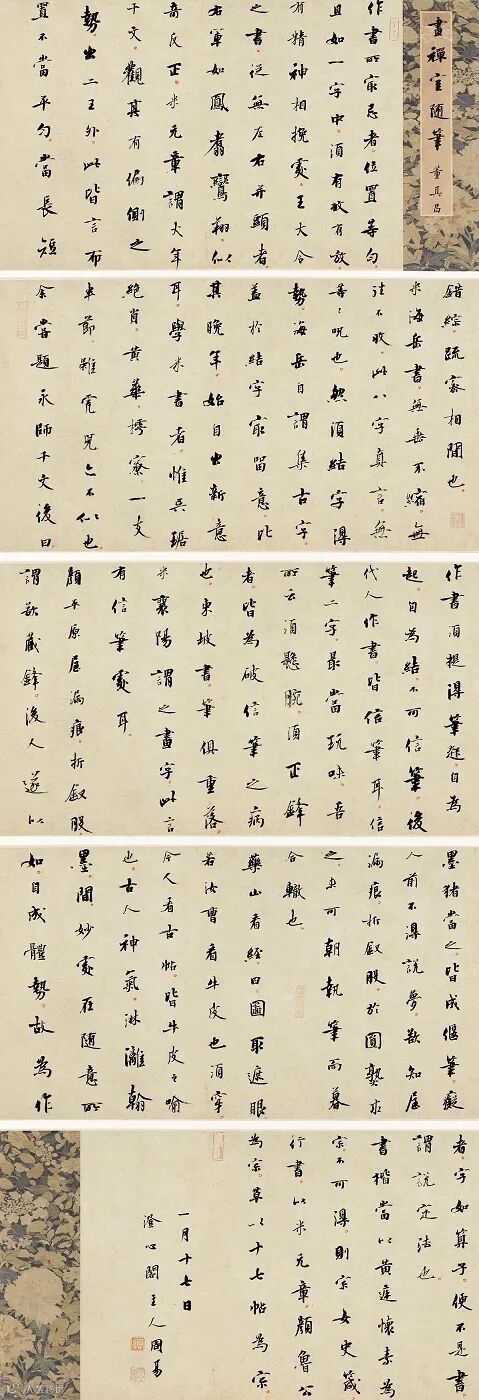 畫禪室隨筆 董其昌
作書所最忌者位置等勻
且如一字中須有收有放
有精神相挽處王大令
之書從無左右並頭者
右軍如鳳翥鸞翔似
奇反正米元章謂大年
千文觀其有偏側之
勢出二王外此皆言布
置不當平勻當長短
錯綜疏密相間也
米海岳書無垂不縮無
往不收此八字真言無
等等咒也然須結字得
勢海岳自謂集古字
蓋於結字最留意比
其晚年始自出新意
耳學米書者惟吳琚
絕肖黃華樗寮一支
半節雖虎兒亦不似也
余嘗題永師千文後曰
作書須提得筆起自為
起自為結不可信筆後
代人作書皆信筆耳信
筆二字最當玩味吾
所云須懸腕須正鋒
者皆為破信筆之病
也東坡書筆俱重落
米襄陽謂之畫字此言
有信筆處耳
顏平原屋漏痕折釵股
謂欲藏鋒後人遂以
墨豬當之皆成偃筆癡
人前不得說夢欲知屋
漏痕折釵股於圓熟求
之未可朝執筆而暮
合轍也
藥山看經曰圖取遮眼
若汝曹看牛皮也須穿
今人看古帖皆牛皮之喻
也古人神氣淋漓翰
墨間妙處在隨意所
如自成體勢故為作
者字如算子便不是書
謂說定法也
書楷當以黃庭懷素為
宗不可得則宗女史箴
行書以米元章顏魯公
為宗草以十七帖為宗
一月十七日
澄心閣主人周易